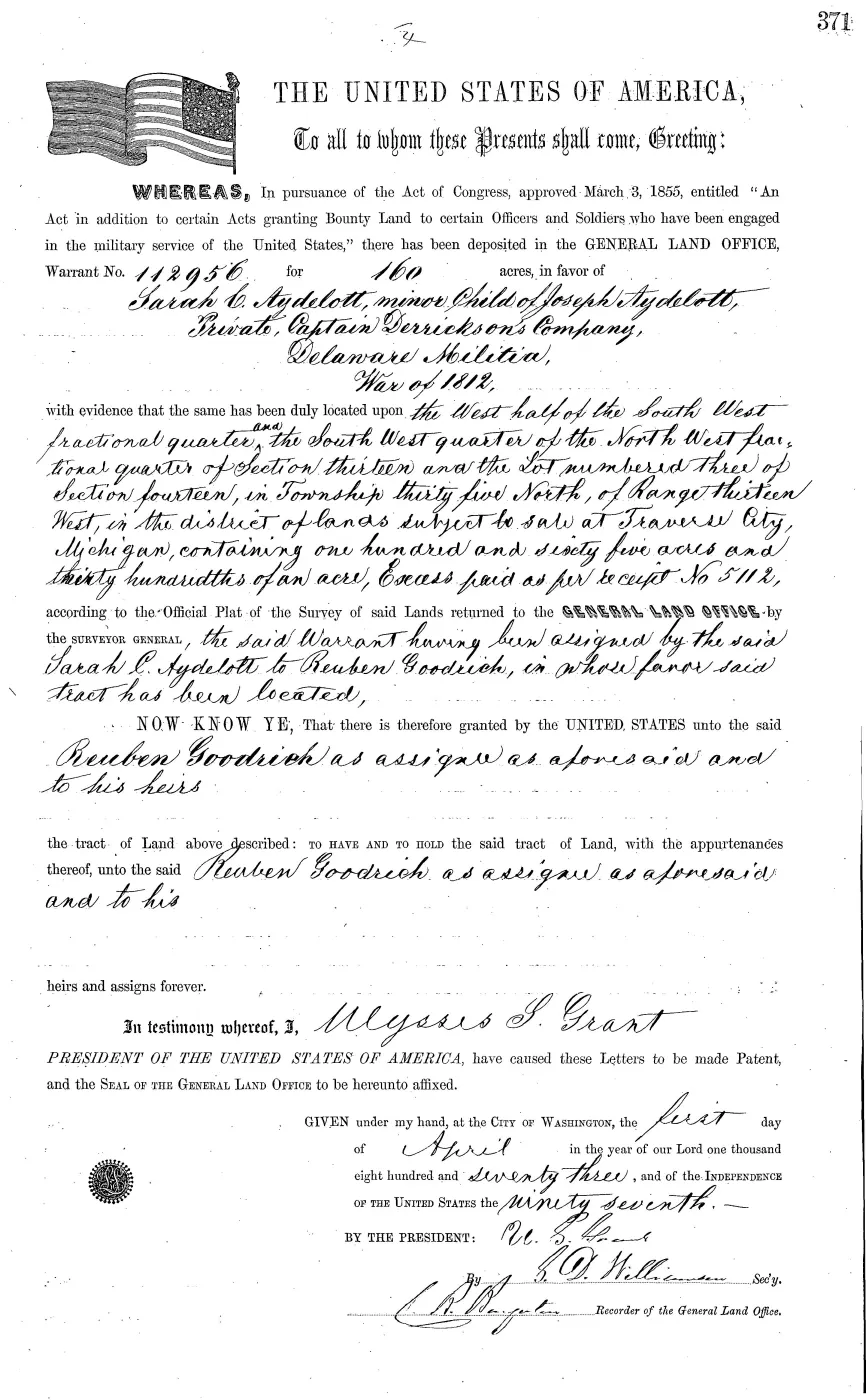 371
4
THE UNITED STATES OF AMERICA,
To all to whom these Presents shall come, Greeting:
WHEREAS, In pursuance of the Act of Congress, approved March 3, 1855, entitled "An
Act in addition to certain Acts granting Bounty Land to certain Officers and Soldiers who have been engaged
in the military service of the United States," there has been deposited in the GENERAL LAND OFFICE,
Warrant No. 112956 for 160 acres, in favor of
Sarah C. Aydelott, minor Child of Joseph Aydelott,
Private, Captain Derrickson's Company,
Delaware Militia,
War of 1812,
with evidence that the same has been duly located upon the West half of the South West
fractional quarter, and the South West quarter of the North West frac-
tional quarter of Section thirteen and the Lot numbered three of
Section fourteen, in Township thirty five North, of Range thirteen
West, in the district of lands subject to sale at Traverse City,
Michigan, containing one hundred and sixty five acres and
thirty hundredths of an acre, Excess paid as per receipt No 5112,
according to the Official Plat of the Survey of said Lands returned to the GENERAL LAND OFFICE by
the SURVEYOR GENERAL, the said Warrant having been assigned by the said
Sarah C. Aydelott to Reuben Goodrich, in whose favor said
tract has been located,
NOW KNOW YE, That there is therefore granted by the UNITED STATES unto the said
Reuben Goodrich as assignee as aforesaid and
to his heirs
the tract of Land above described: TO HAVE AND TO HOLD the said tract of Land, with the appurtenances
thereof, unto the said Reuben Goodrich as assignee as aforesaid
and to his
heirs and assigns forever.
In testimony whereof, I, Ulysses S. Grant
PRESIDENT OF THE UNITED STATES OF AMERICA, have caused these Letters to be made Patent,
and the SEAL OF THE GENERAL LAND OFFICE to be hereunto affixed.
GIVEN under my hand, at the CITY OF WASHINGTON, the first day
of April in the year of our Lord one thousand
eight hundred and seventy three, and of the INDEPENDENCE
OF THE UNITED STATES the ninety seventh.—
BY THE PRESIDENT: U. S. Grant
By S. D. Williamson Sec'y.
Recorder of the General Land Office.